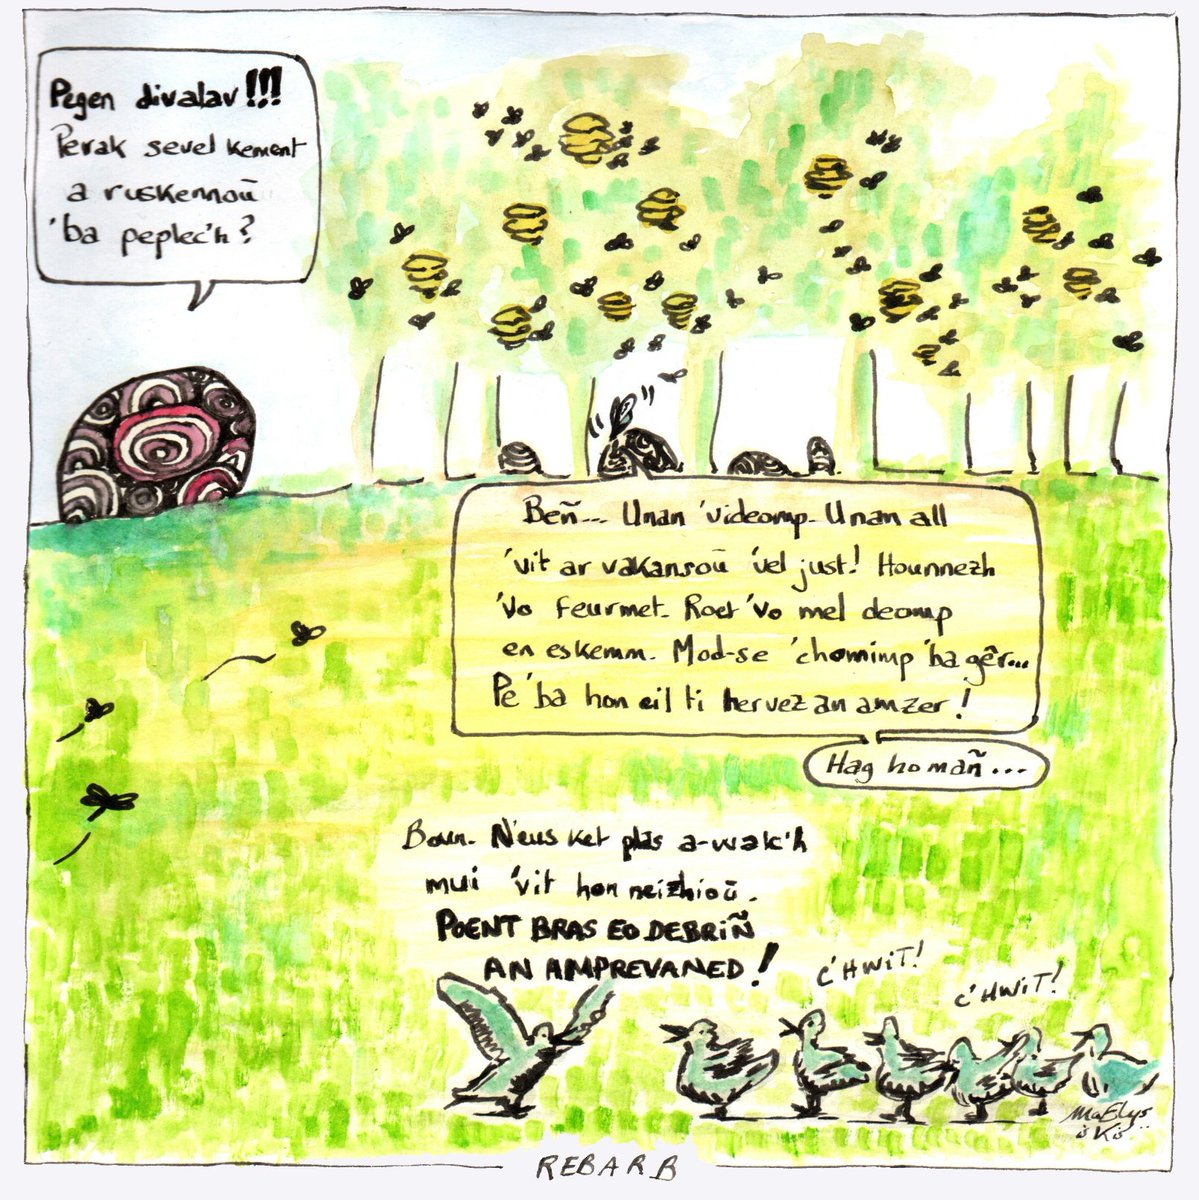 Pegen divalav!!!
Perak sevel kement
a ruskennoù
'ba peplec'h?
Beñ... Unan 'videomp. Unan all
'vit ar vakansoù 'vel just! Hounnezh
'Vo feurmet. Roet 'Vo mel deomp
en eskemm. Mod-se 'chomimp 'ba gêr...
Pe 'ba hon eil ti hervez an amzer!
Hag homañ...
Boun. N'eus ket plas a-walc'h
mui 'vit hon neizhioù.
POENT BRAS EO DEBRIÑ
AN AMPREVANED!
C'HWIT!
C'HWIT!
MaElys
REBARB